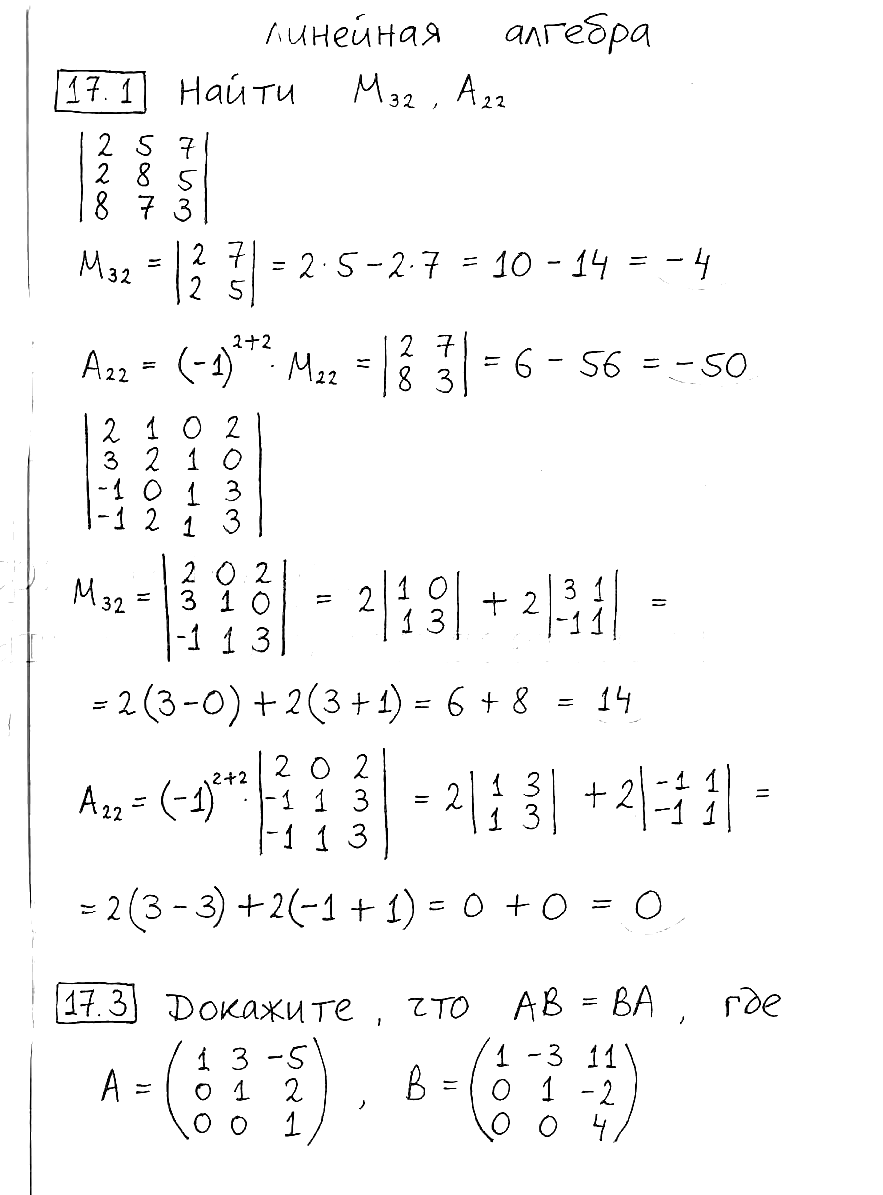 линейная алгебра
17.1 Найти M₃₂, A₂₂
|2 5 7|
|2 8 5|
|8 7 3|
M₃₂ = |2 7; 2 5| = 2·5 − 2·7 = 10 − 14 = −4
A₂₂ = (−1)²⁺²· M₂₂ = |2 7; 8 3| = 6 − 56 = −50
|2 1 0 2|
|3 2 1 0|
|−1 0 1 3|
|−1 2 1 3|
M₃₂ = |2 0 2; 3 1 0; −1 1 3| = 2|1 0; 1 3| + 2|3 1; −1 1| =
= 2(3−0) + 2(3+1) = 6 + 8 = 14
A₂₂ = (−1)²⁺²· |2 0 2; −1 1 3; −1 1 3| = 2|1 3; 1 3| + 2|−1 1; −1 1| =
= 2(3−3) + 2(−1+1) = 0 + 0 = 0
17.3 Докажите, что AB = BA, где
A = (1 3 −5; 0 1 2; 0 0 1), B = (1 −3 11; 0 1 −2; 0 0 4)